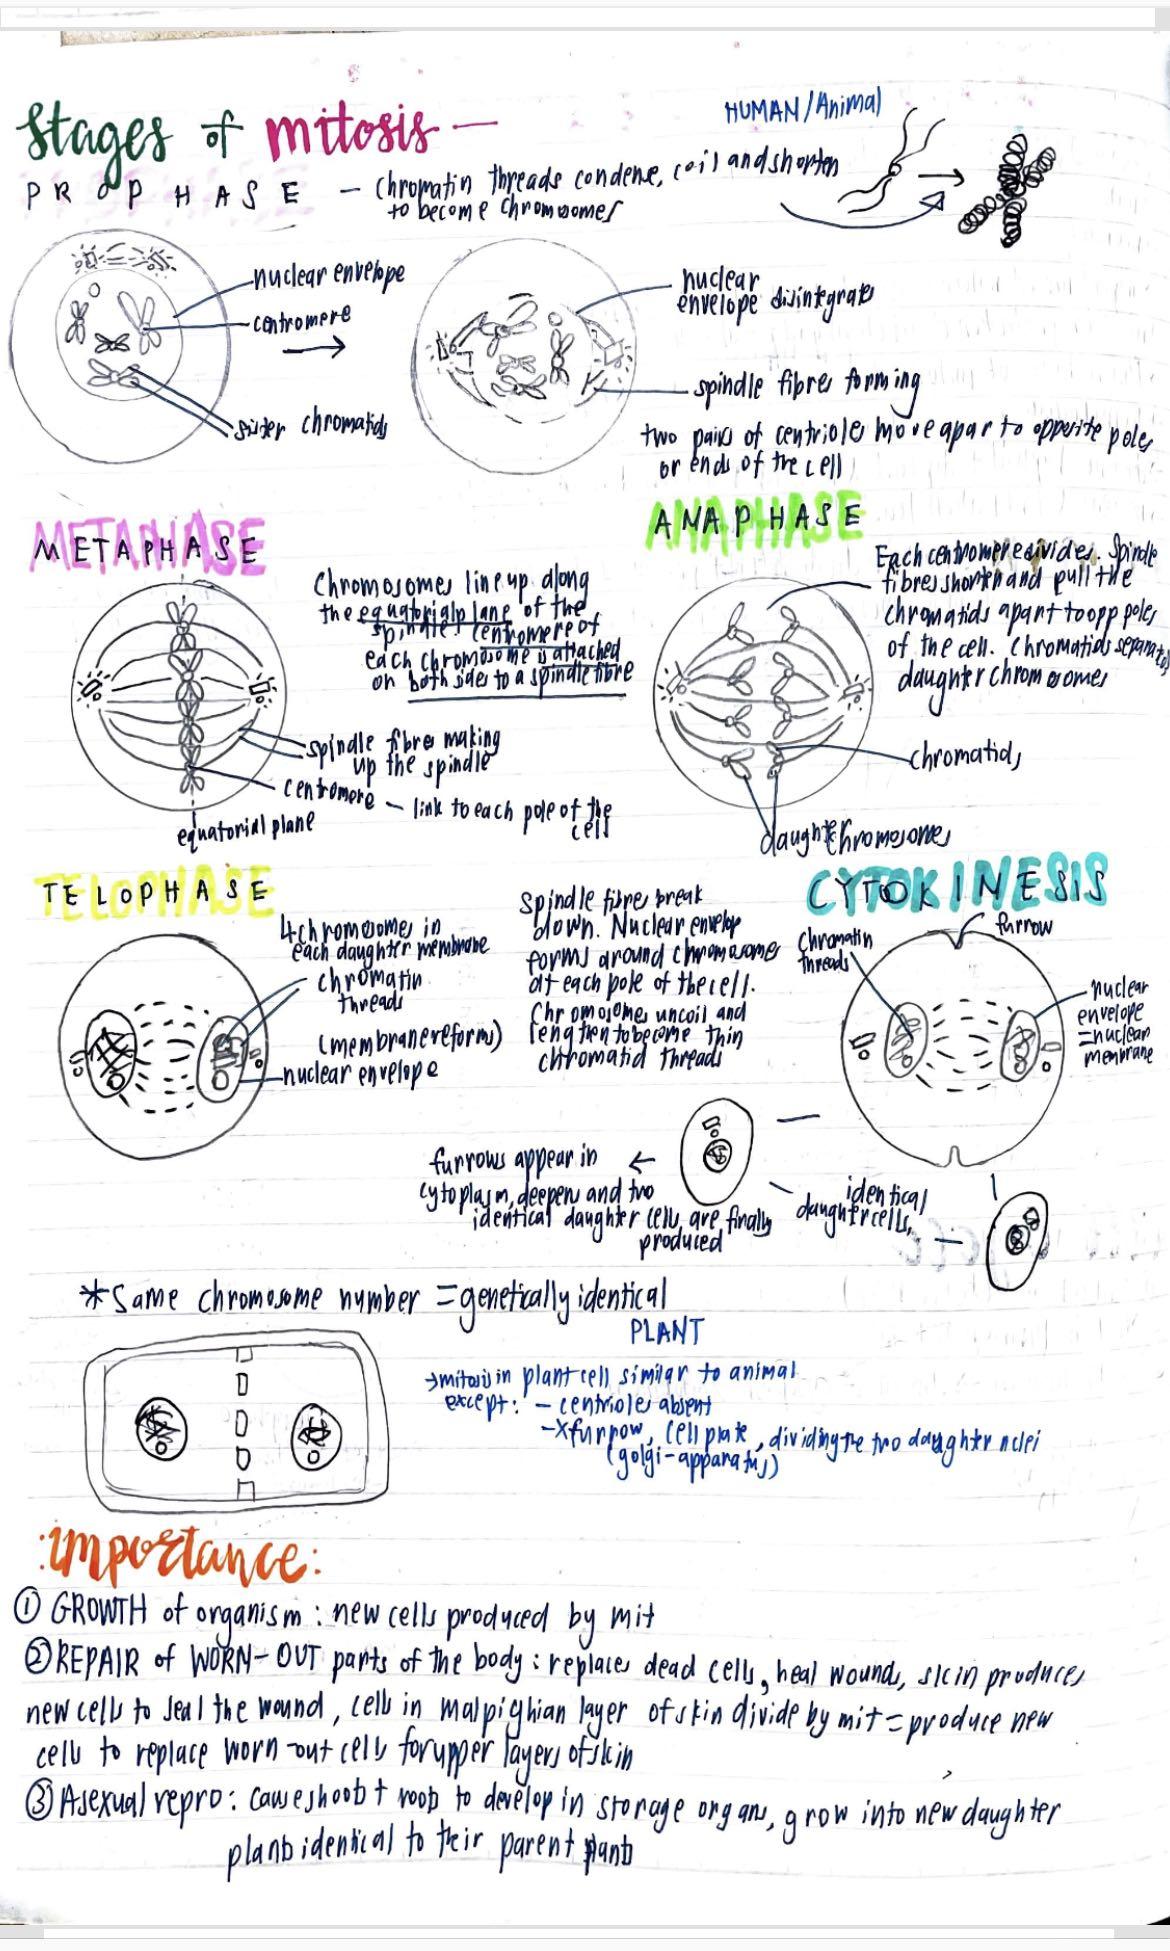 Stages of mitosis —
HUMAN/Animal
PROPHASE — chromatin threads condense, coil and shorten
to become chromosomes
nuclear envelope
centromere
sister chromatids
nuclear
envelope disintegrates
spindle fibres forming
two pairs of centrioles move apart to opposite poles
or ends of the cell
METAPHASE
Chromosomes line up along
the equatorial plane of the
spindle. Centromere of
each chromosome is attached
on both sides to a spindle fibre
spindle fibres making
up the spindle
centromere — link to each pole of the
cell
equatorial plane
ANAPHASE
Each centromere divides. Spindle
fibres shorten and pull the
chromatids apart to opp poles
of the cell. Chromatids separate,
daughter chromosomes
chromatids
daughter chromosomes
TELOPHASE
4 chromosome in
each daughter membrane
chromatin
threads
(membrane reforms)
nuclear envelope
Spindle fibres break
down. Nuclear envelope
forms around chromosomes
at each pole of the cell.
Chromosomes uncoil and
lengthen to become thin
chromatid threads
CYTOKINESIS
furrow
chromatin
threads
nuclear
envelope
=nuclear
membrane
furrows appear in ←
cytoplasm, deepens and two
identical daughter cells are finally
produced
identical
daughter cells
*Same chromosome number = genetically identical
PLANT
→mitosis in plant cell similar to animal
except: – centrioles absent
–X furrow, cell plate, dividing the two daughter nclei
(golgi-apparatus)
:importance:
① GROWTH of organism : new cells produced by mit
② REPAIR of WORN-OUT parts of the body : replaces dead cells, heal wounds, skin produces
new cells to seal the wound, cells in malpighian layer of skin divide by mit = produce new
cells to replace worn-out cells for upper layers of skin
③ Asexual repro : cause shoot + roots to develop in storage organs, grow into new daughter
plants identical to their parent plants